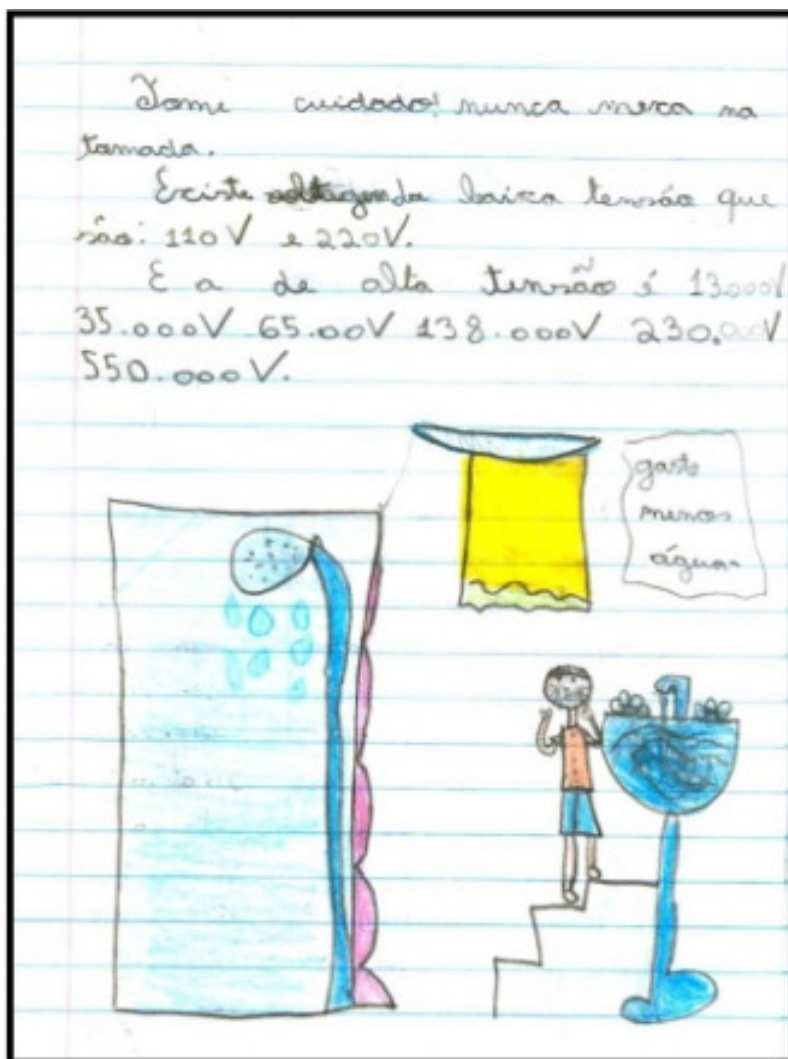 Tome cuidado! nunca mexa na
tamada.
Existe voltagem da baixa tensão que
são: 110V e 220V.
E a de alta tensão é 13.000V
35.000V 65.00V 138.000V 230.000V
550.000V.
gaste
menos
água